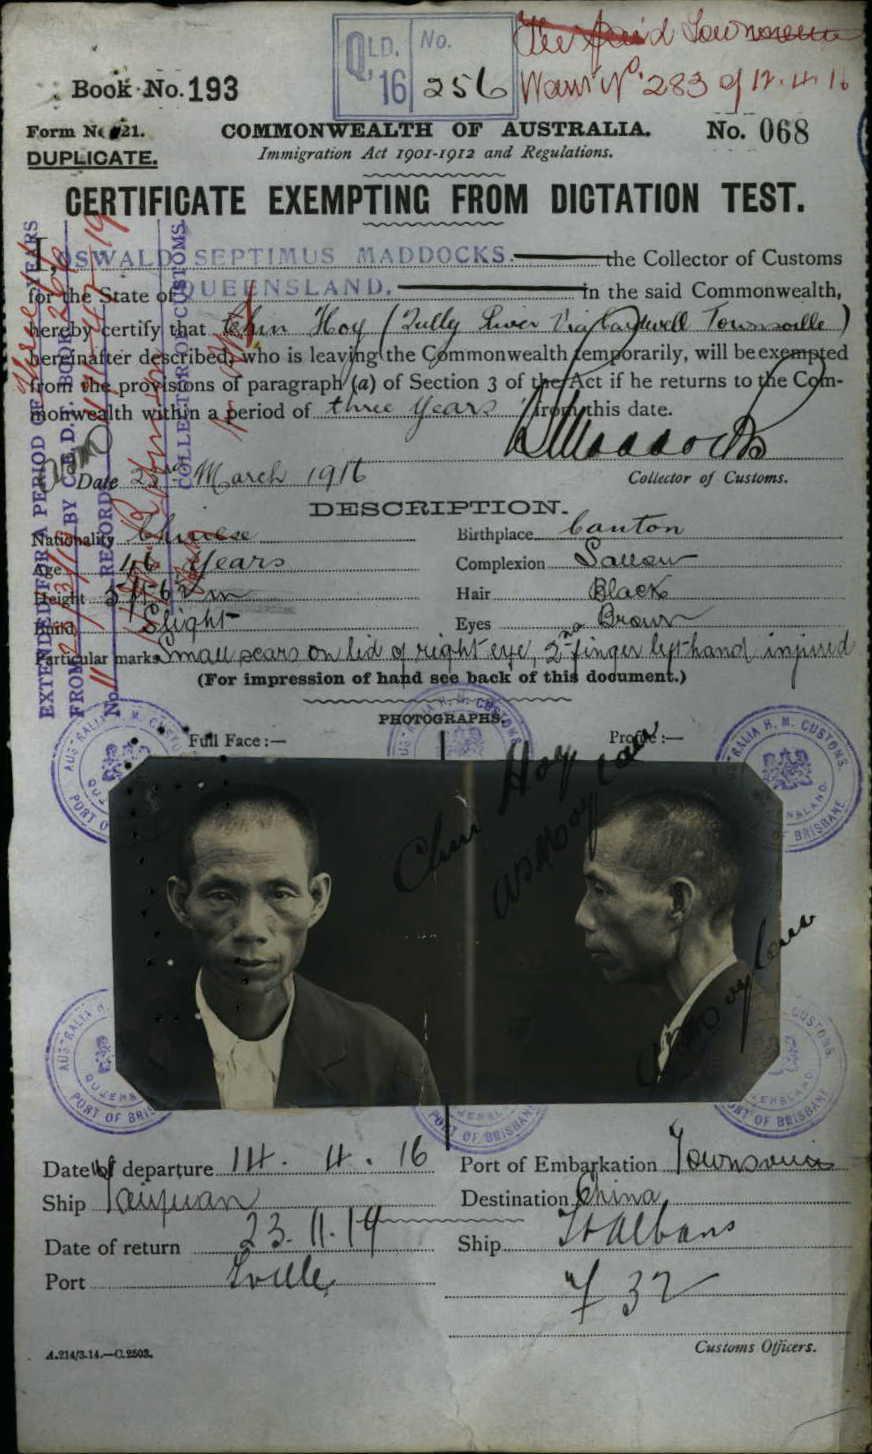 QLD. No.
'16 256
Book No. 193
283 of 12.4.16
Form No 21.
COMMONWEALTH OF AUSTRALIA.
No. 068
DUPLICATE.
Immigration Act 1901-1912 and Regulations.
CERTIFICATE EXEMPTING FROM DICTATION TEST.
I, OSWALD SEPTIMUS MADDOCKS. the Collector of Customs
for the State of QUEENSLAND. in the said Commonwealth,
hereby certify that Chin Hoy (Tully River Via Cardwell Townsville)
hereinafter described, who is leaving the Commonwealth temporarily, will be exempted
from the provisions of paragraph (a) of Section 3 of the Act if he returns to the Com-
monwealth within a period of three years from this date.
Date March 1916
Collector of Customs.
DESCRIPTION.
Nationality Chinese
Birthplace Canton
Age 46 Years
Complexion Sallow
Height
Hair Black
Build Slight
Eyes Brown
Particular marks Small scars on lid of right eye, 2nd finger left hand injured
(For impression of hand see back of this document.)
PHOTOGRAPHS.
Full Face :—
Profile :—
Chin Hoy
EXTENDED FOR A PERIOD OF Three YEARS
FROM BY C.E.D.T. BOOK
No. RECORD
COLLECTOR OF CUSTOMS.
AUSTRALIA H. M. CUSTOMS.
QUEENSLAND.
PORT OF BRISBANE
Date of departure 14. 4. 16
Port of Embarkation Townsville
Ship Taiyuan
Destination China
Date of return 23.11.19
Ship St Albans
Port Tville
32
A.214/3.14.—C.2503.
Customs Officers.